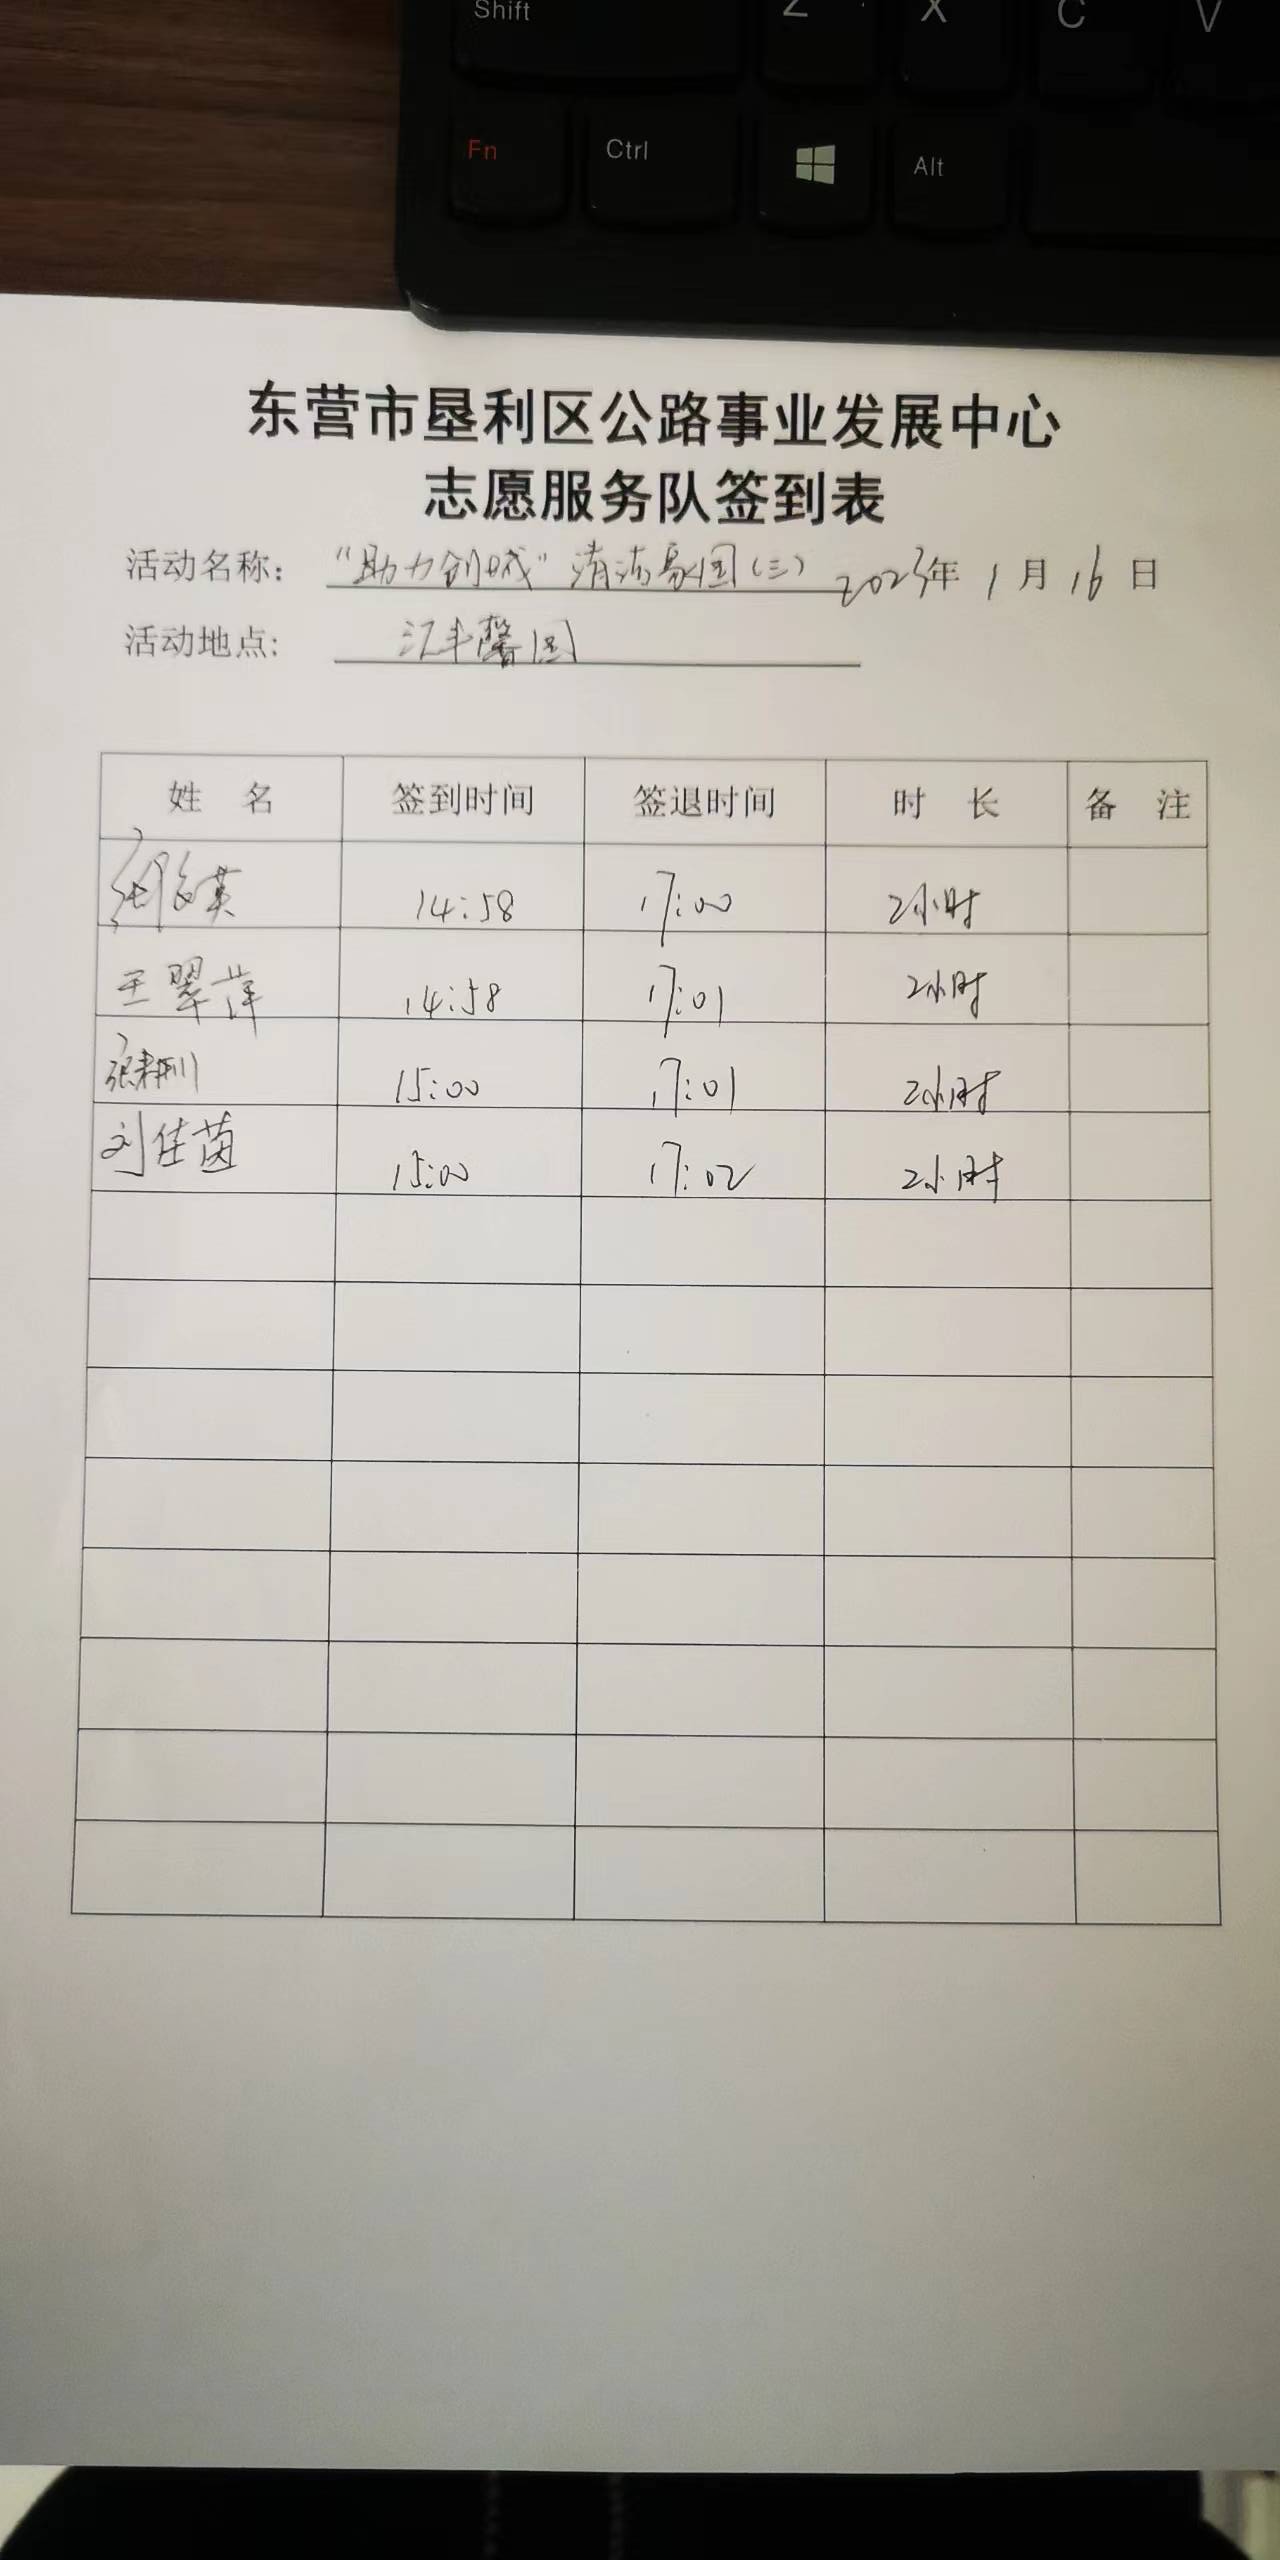 Shift Z X C V
Fn Ctrl Alt
东营市垦利区公路事业发展中心
志愿服务队签到表
活动名称： “助力创城”清洁家园（三） 2023年 1 月 16 日
活动地点: 汇丰馨园
姓 名 签到时间 签退时间 时 长 备 注
14:58 17:00 2小时
王翠萍 14:58 17:01 2小时
15:00 17:01 2小时
刘佳茵 15:00 17:02 2小时